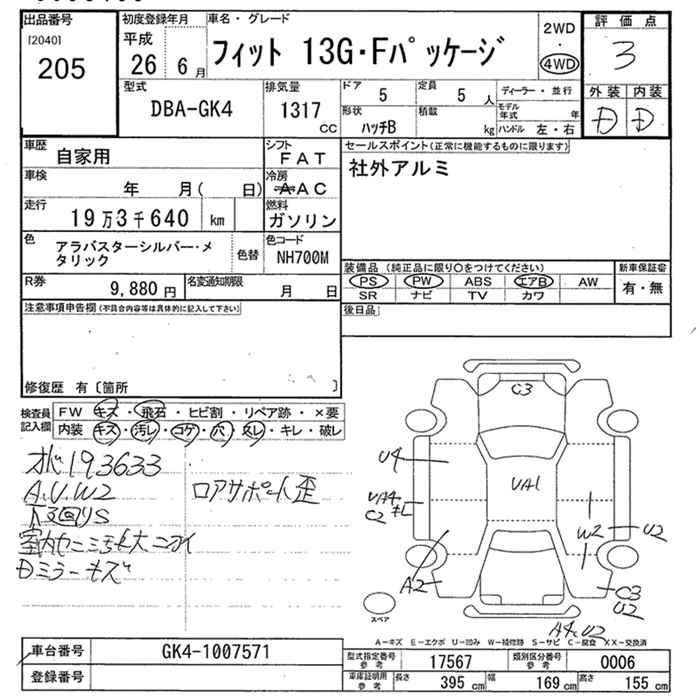 出品番号
[2040]
205
初度登録年月
平成
26 6月
車名・グレード
フィット 13G・Fパッケージ
2WD
・
4WD
評価点
3
外装 内装
D D
型式
DBA-GK4
排気量
1317
CC
ドア 5
定員 5人
形状 ハッチB
積載 kg
ディーラー・並行
モデル年式 年
ハンドル 左・右
車歴
自家用
シフト
FAT
車検
年 月( 日)
冷房
AAC
走行
19万3千640 km
燃料
ガソリン
色
アラバスターシルバー・メ
タリック
色替
色コード
NH700M
R券
9,880円
名変通知期限
月 日
セールスポイント(正常に機能するものに限ります)
社外アルミ
装備品 (純正品に限り○をつけてください)
PS PW ABS エアB AW
SR ナビ TV カワ
新車保証書
有・無
後日品
注意事項申告欄(不具合内容等は具体的に記入して下さい)
修復歴 有〔箇所 〕
検査員
記入欄
FW キズ・飛石・ヒビ割・リペア跡・×要
内装 キズ・汚レ・コゲ・穴・スレ・キレ・破レ
193633
A.U.W2
ロアサポート歪
下回りS
Dミラーキズ
C3
U4
UA1
UA4
C2
W2
U2
A2
C3
U2
A4.U2
スペア
A-キズ E-エクボ U-凹み W-補修跡 S-サビ C-腐食 XX-交換済
車台番号
GK4-1007571
登録番号
型式指定番号
参考
17567
類別区分番号
参考
0006
車庫証明用
参考
長さ 395 cm
幅 169 cm
高さ 155 cm